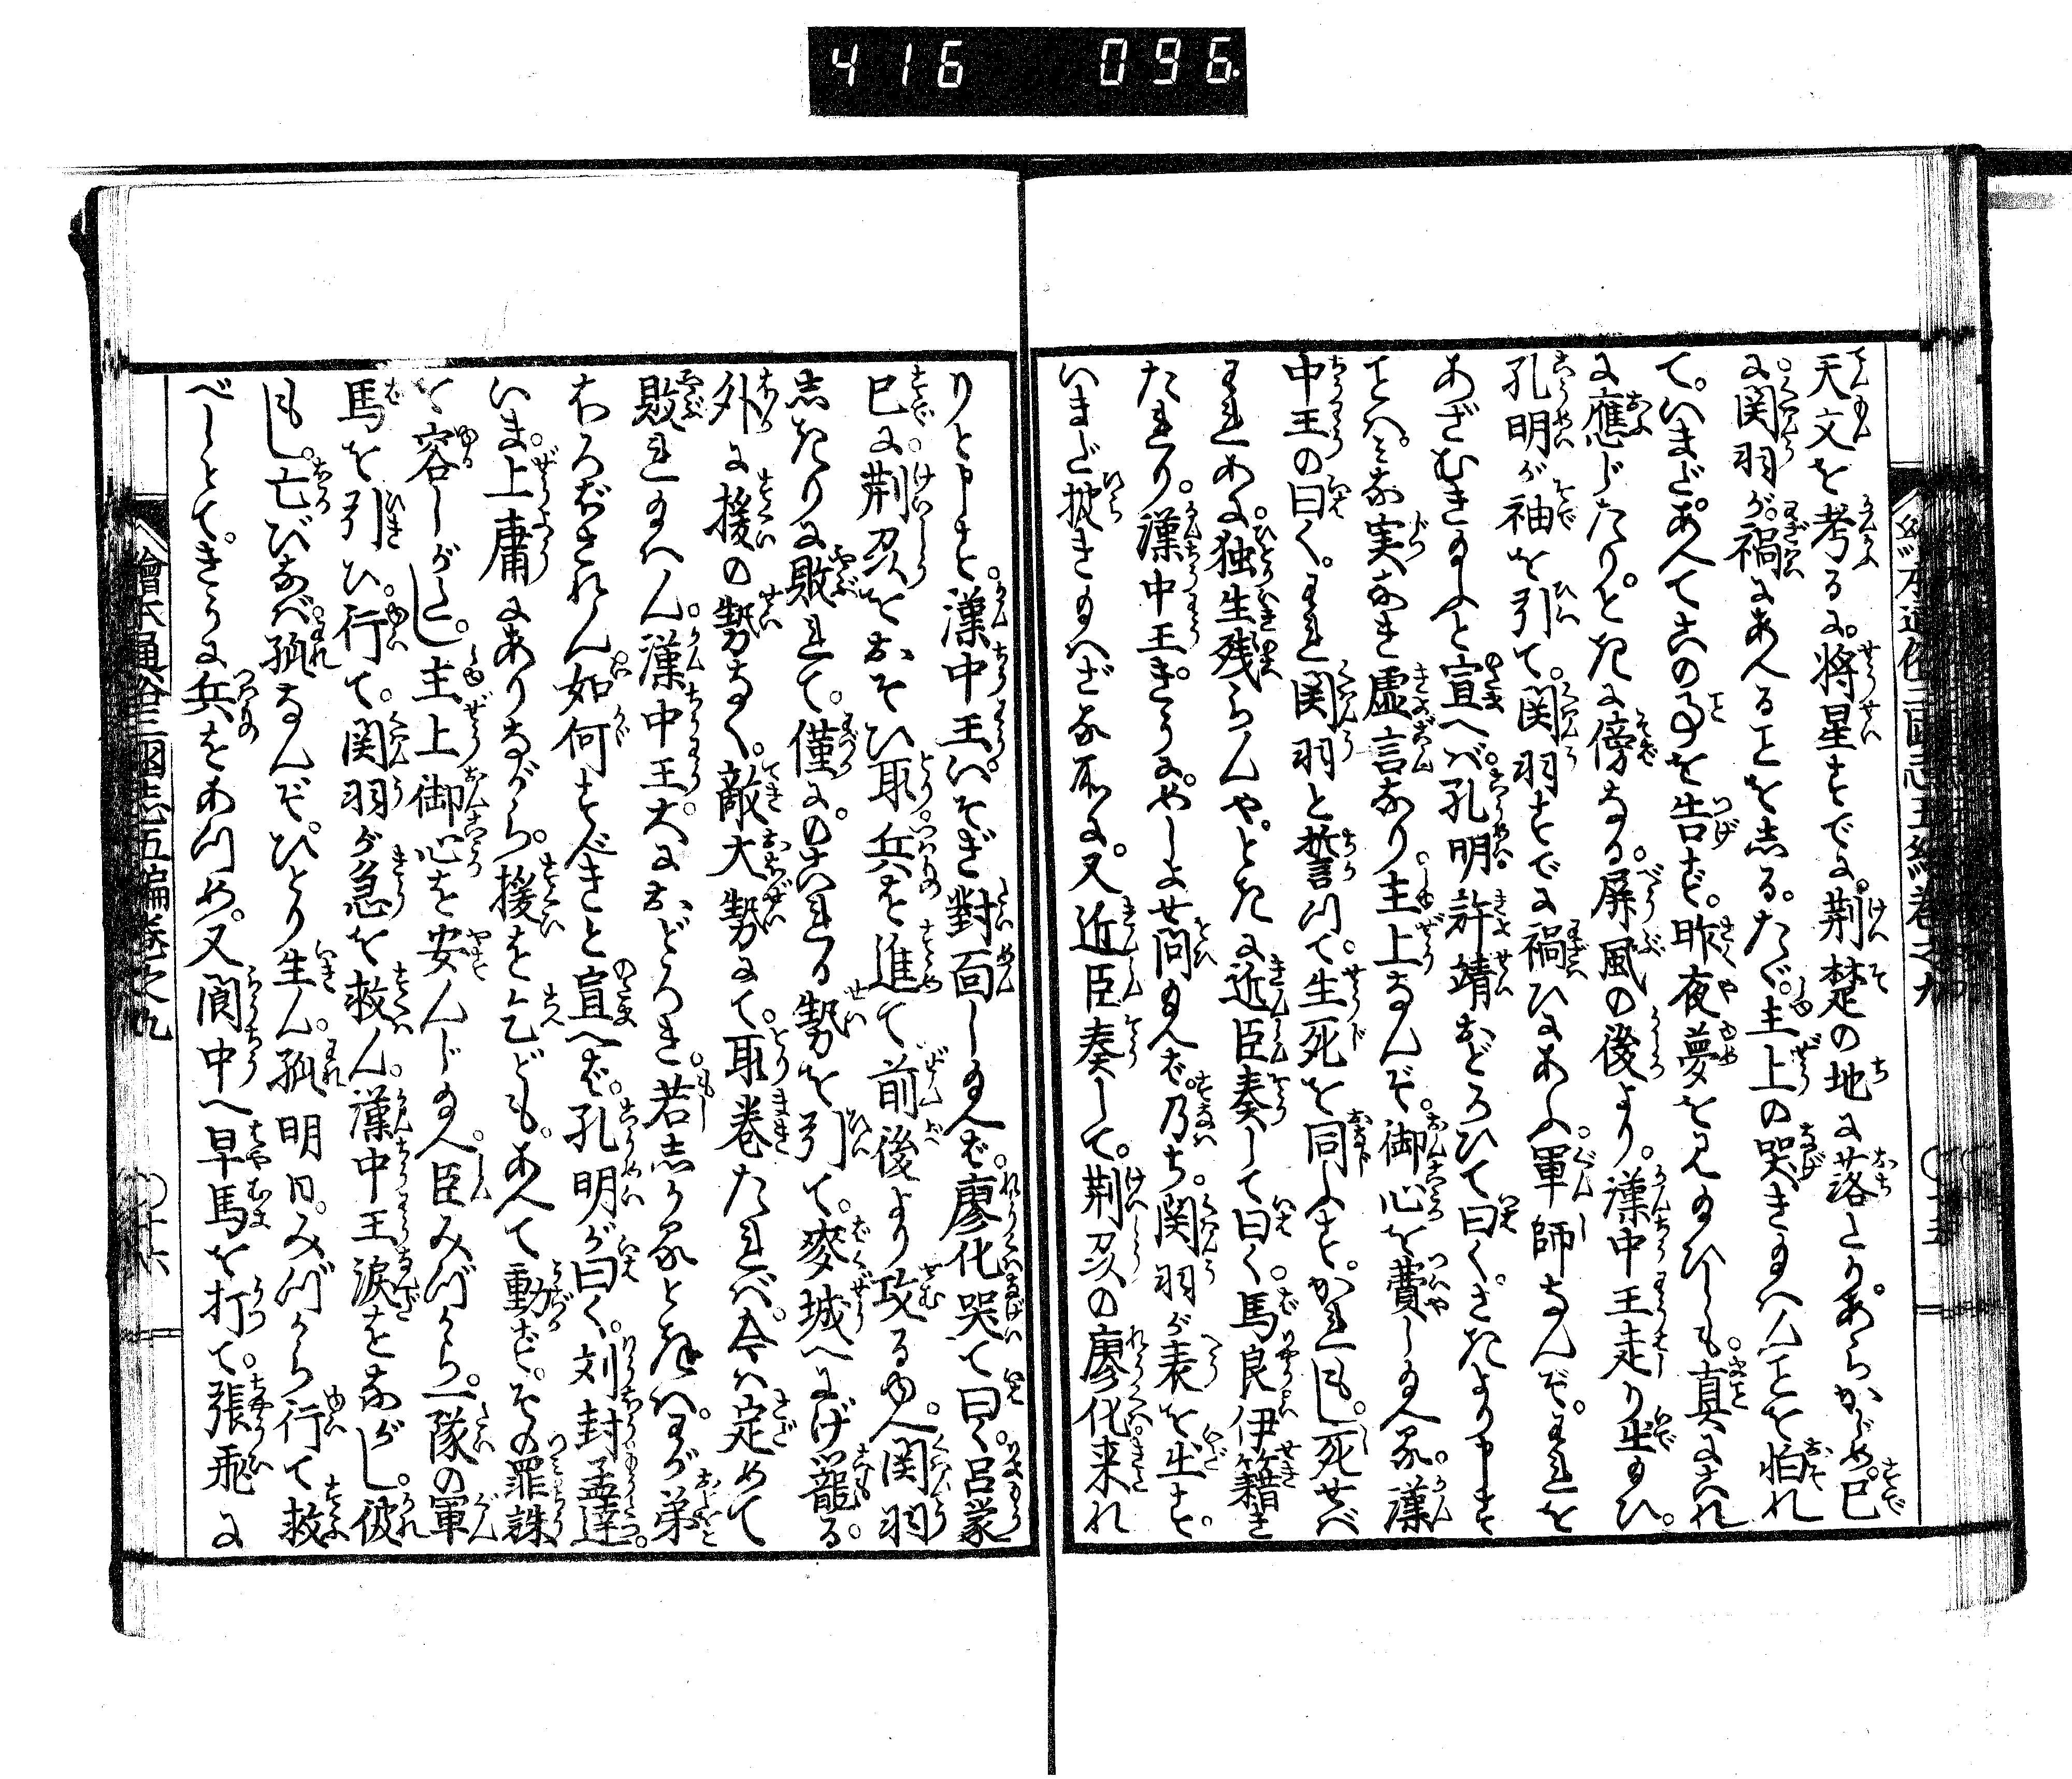 416 096.
天文を考るに。将星すでに。荆楚の地に落たり。あらかじめ。已
に関羽が。禍にあへることを志る。たゞ。主上の哭き玉へんことを怕れ
て。いまだ。あへてこの事を告ず。昨夜夢を見玉ひしも。真にこれ
に應じたり。とたに傍なる。屏風の後より。漢中王走り出玉ひ。
孔明が袖を引て。関羽すでに禍ひにあふ。軍師なんぞ。われを
あざむき玉ふと宣へバ。孔明許靖おどろひて曰く。さたより申す
ことハ。ミな実なき虚言なり。主上なんぞ。御心を費し玉へる。漢
中王の曰く。われ関羽と誓つて。生死を同ふす。かれもし。死せバ
われあに独生残らんや。とたに近臣奏して曰く。馬良伊籍き
たれり。漢中王。きうに。やしよせ問玉へば。乃ち。関羽が表を出す。
いまだ披き玉ハざる所に。又近臣奏して。荆州の廖化来れ
りと申す。漢中王。いそぎ對面し玉へば。廖化哭て曰く。呂蒙
已に。荆州をおそひ取。兵を進て前後より攻るゆへ。関羽
志きりに敗れて。僅に。のこれる勢を引て。麥城へにげ籠る。
外に援の勢なく。敵大勢にて。取巻たれバ。今ハ定めて
敗れ玉へん。漢中王大におどろき。若志からんとなへ。わが弟
ほろぼされん。如何すべきと宣へば。孔明が曰く。刘封孟達。
いま。上庸にありながら。援を乞ども。あへて動ず。その罪誅
を容しがたし。主上御心を安んじ玉へ。臣みづから。一隊の軍
馬を引ひ。行て。関羽が急を救ん。漢中王涙をながし。彼
もし。亡びなバ。孤なんぞ。ひとり生ん。孤明日。みづから行て救
べしとて。きうに兵をあつめ。又閬中へ早馬を打て。張飛に
繪本通俗三國志五編巻之九
十六